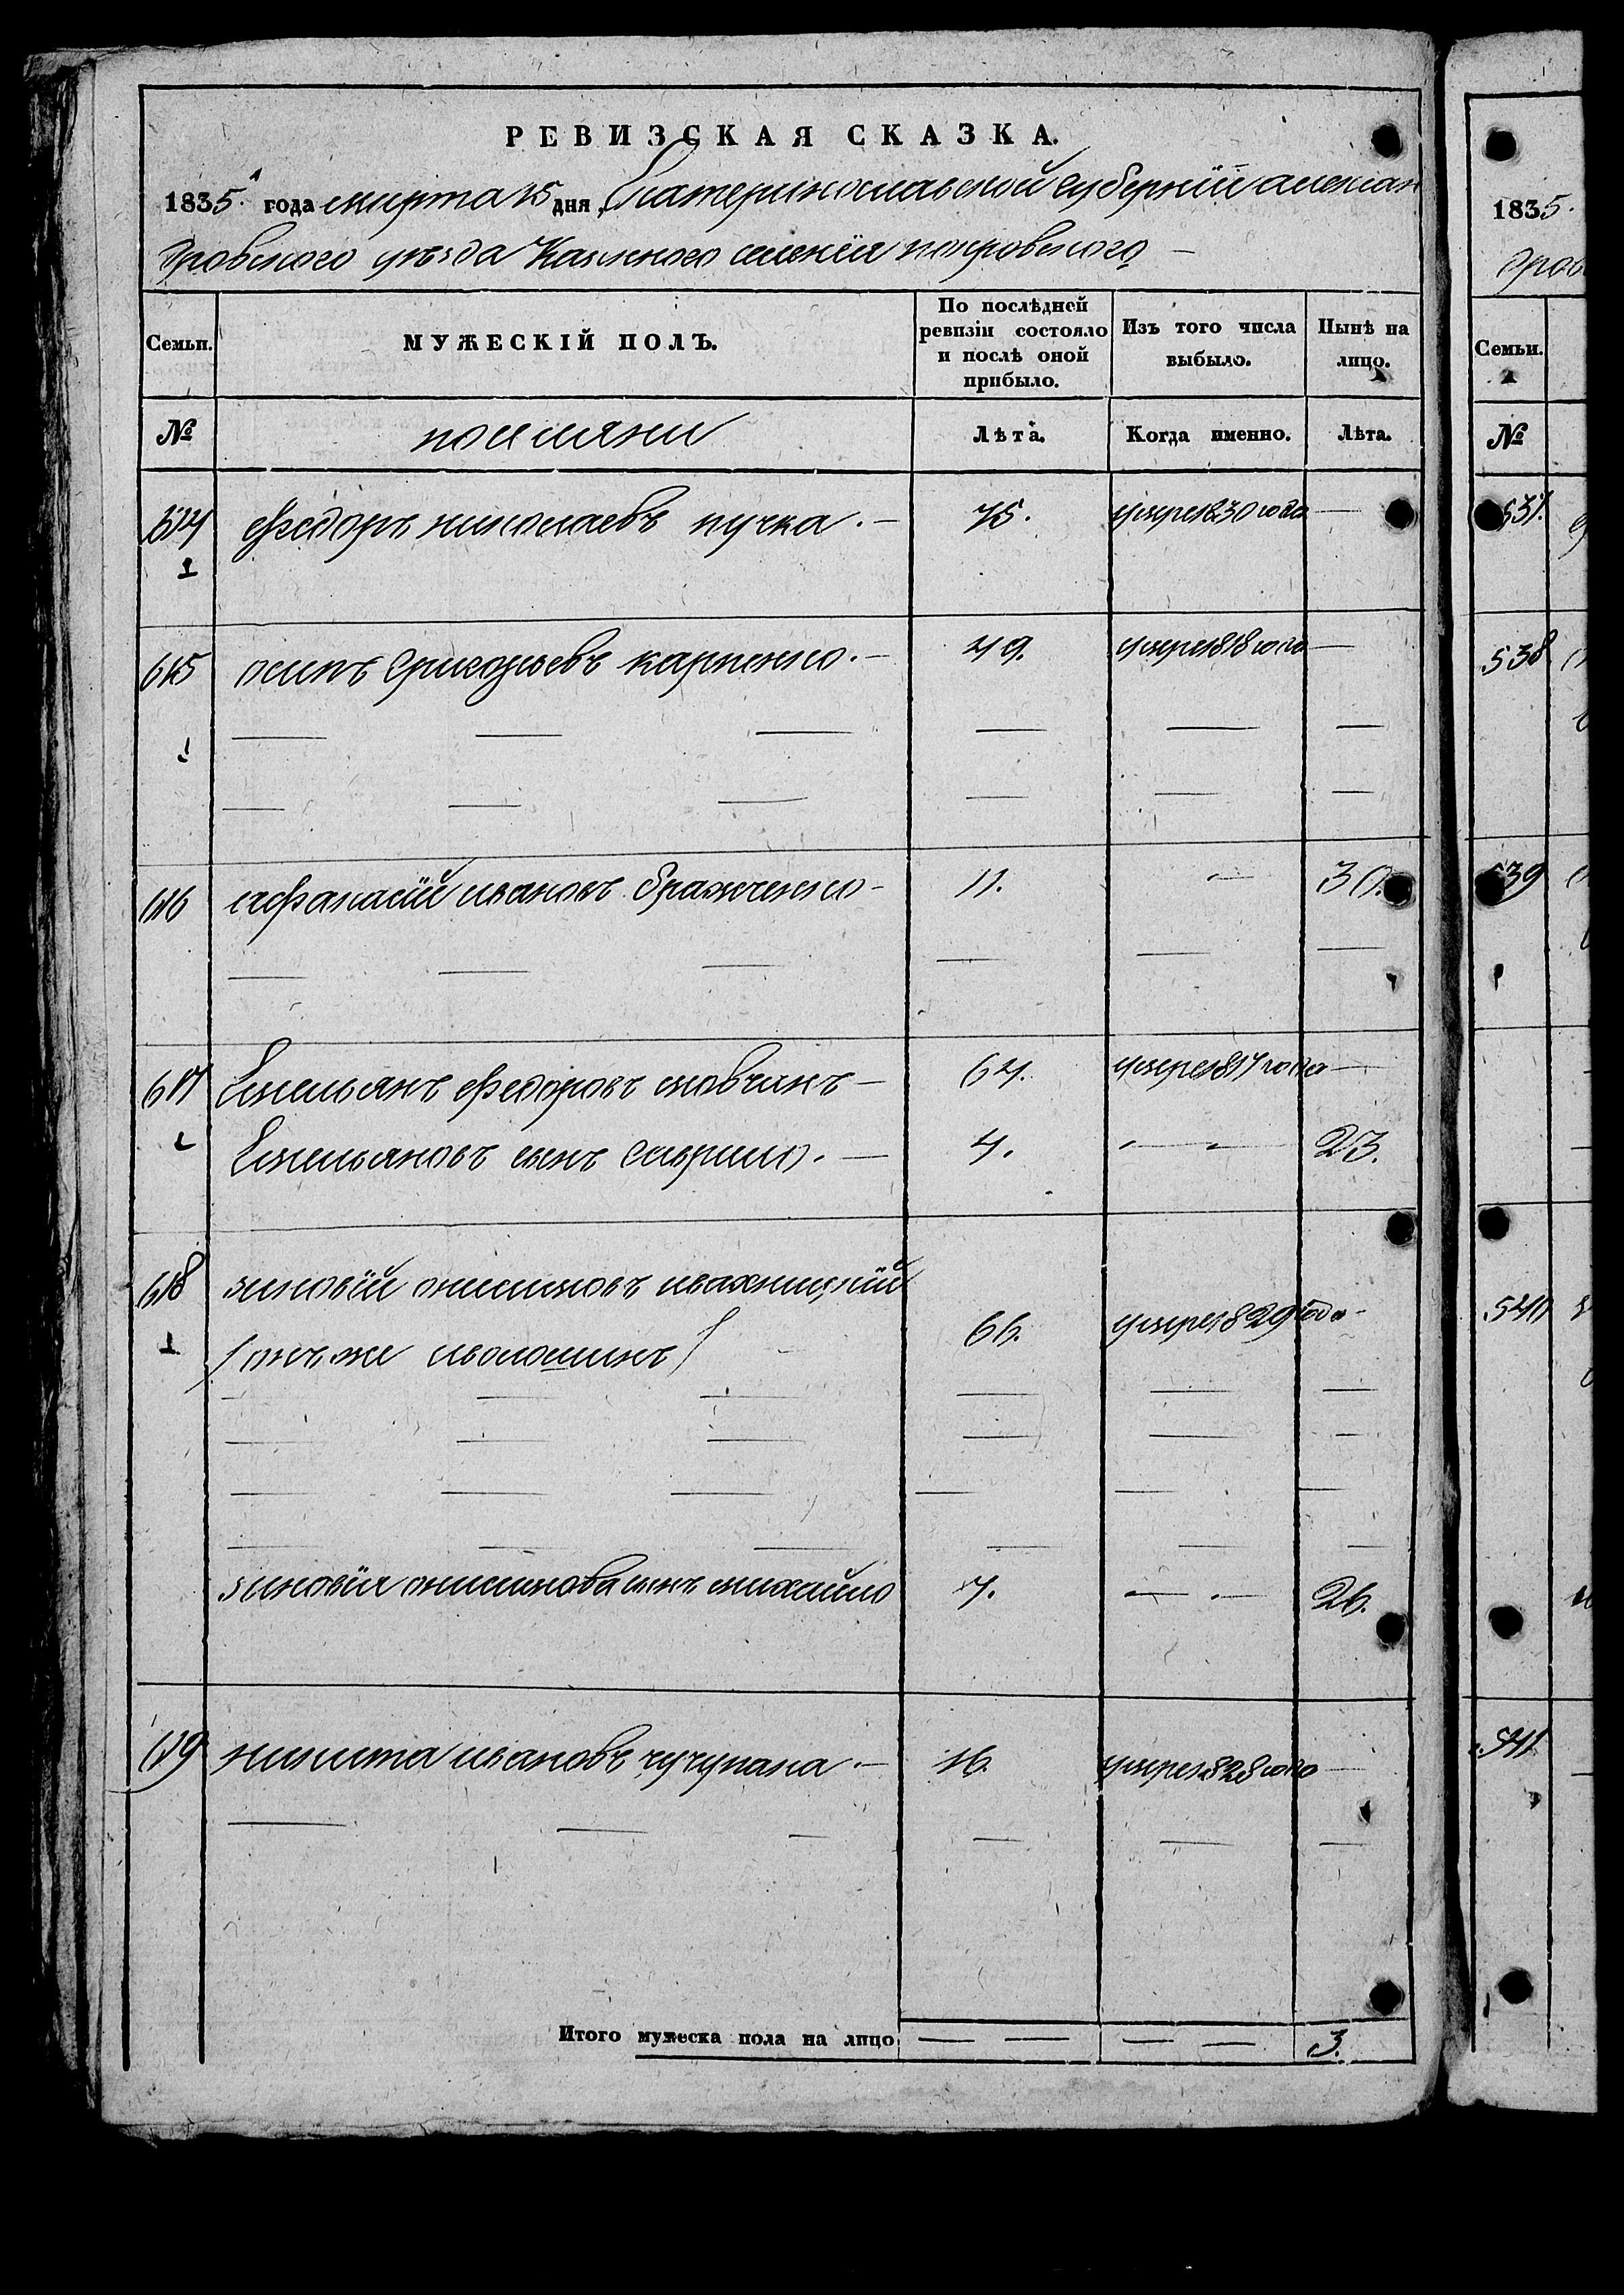 РЕВИЗСКАЯ СКАЗКА.
1835. года марта 15 дня Екатеринославской губернїи алексан
дровского уезда Казенного селенїя покровского
Семьи.
МУЖЕСКІЙ ПОЛЪ.
По послѣдней ревизіи состояло и послѣ оной прибыло.
Изъ того числа выбыло.
Нынѣ на лицо.
№
поселяни
Лѣта.
Когда именно.
Лѣта.
федоръ николаевъ пучка. 75. умре 1830 года
1
615 осипъ григорьевъ карпенко. 49. умре 1818 года
1
616 афанасїй ивановъ бражченко 11. 30.
617 Емельянъ федоровъ мовчанъ 64. умре 1817 года
Емельяновъ сынъ гаврило. 4. 23.
618 зиновїй онисимовъ ивахницкїй
1
онъ же иволошинъ 66. умре 1829 года
зиновїя онисимова сынъ михайло 7. 26.
619 никита ивановъ чучупака 16. умре 1828 года
Итого мужеска пола на лицо 3.
1835.
дров
Семьи.
№
537.
538
539
540
541